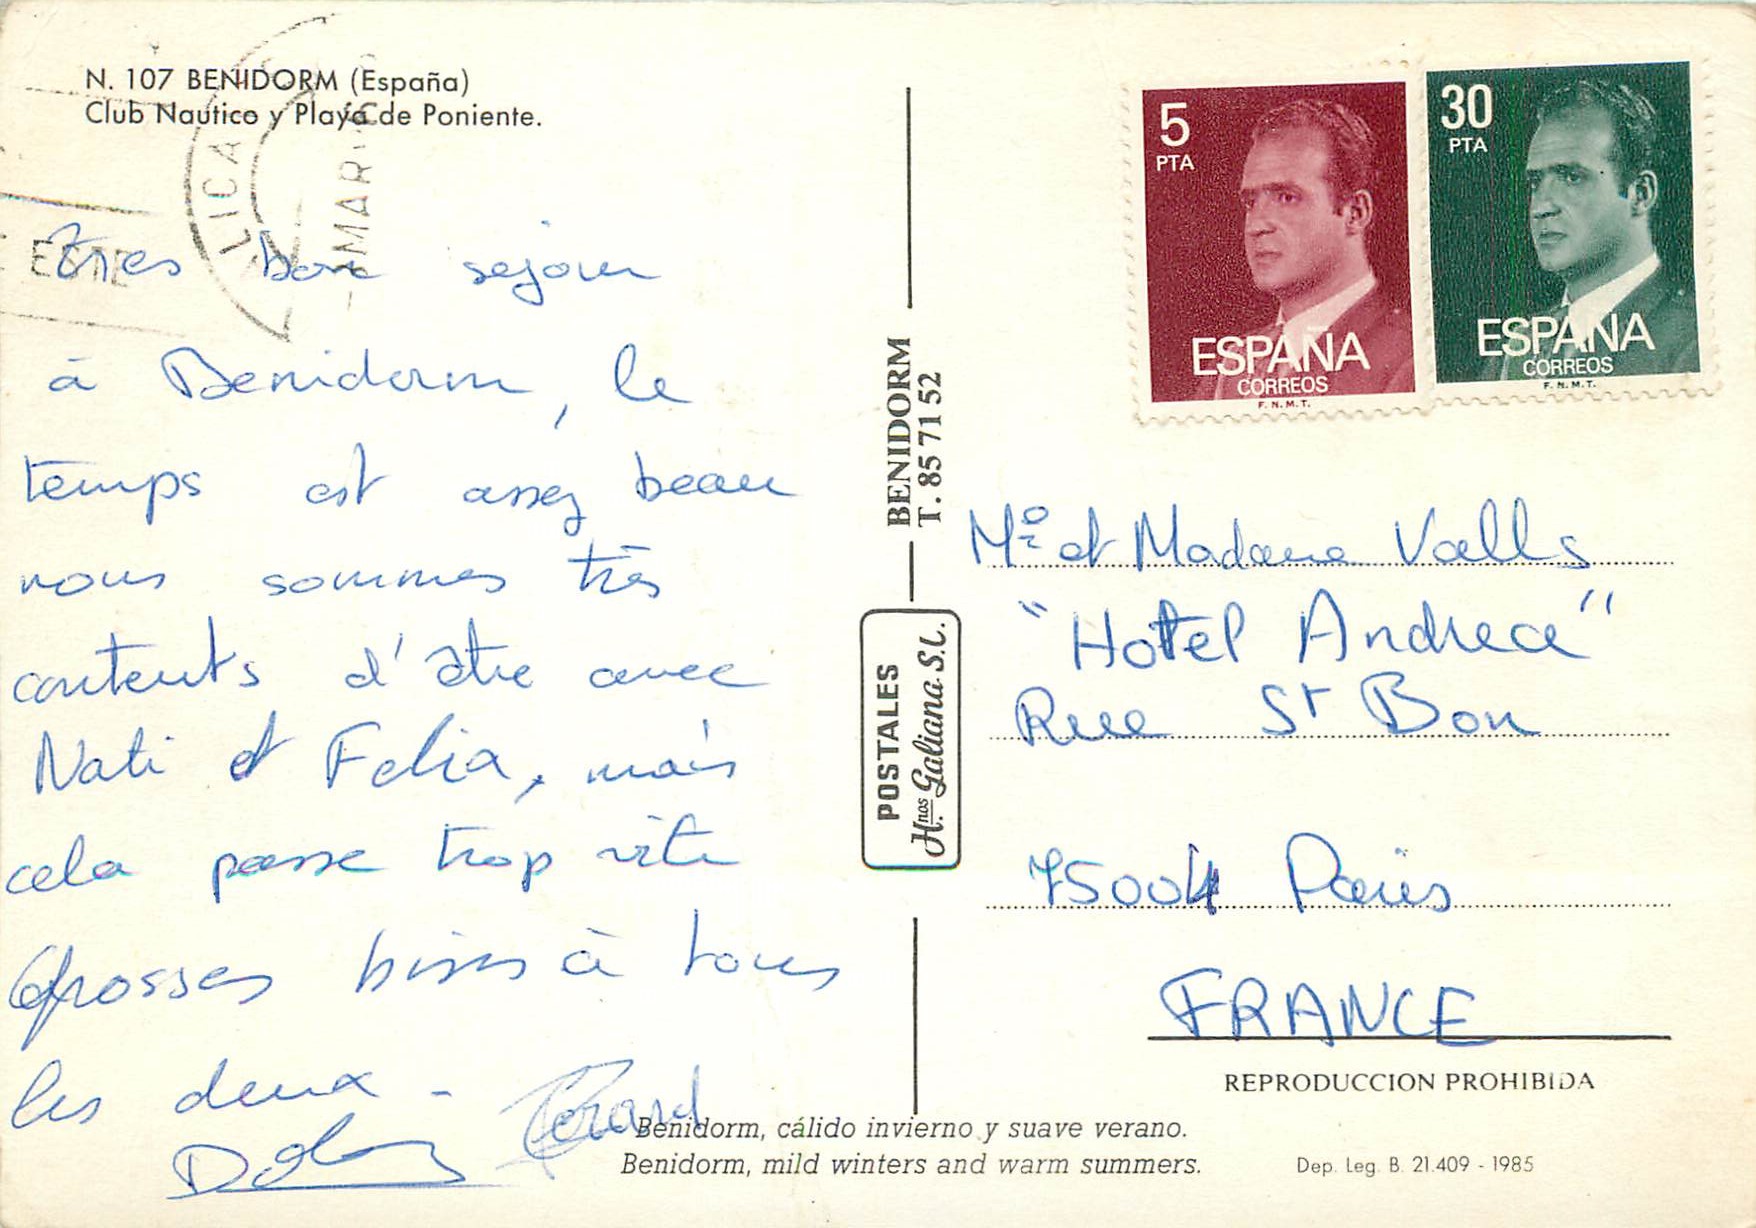 N. 107 BENIDORM (España)
Club Nautico y Playa de Poniente.
LICA
MAR
ESTE
très bon sejour
à Benidorm, le
temps est assez beau
nous sommes très
contents d'être avec
Nati et Felia, mais
cela passe trop vite
Grosses bises à tous
les deux -
Gérard
BENIDORM
T. 85 71 52
POSTALES
H.nos Galiana S.L.
5
PTA
ESPAÑA
CORREOS
F.N.M.T.
30
PTA
ESPAÑA
CORREOS
F.N.M.T.
Mr et Madame Valls
"Hotel Andrea"
Rue St Bon
75004 Paris
FRANCE
REPRODUCCION PROHIBIDA
Benidorm, cálido invierno y suave verano.
Benidorm, mild winters and warm summers.
Dep. Leg. B. 21.409 - 1985